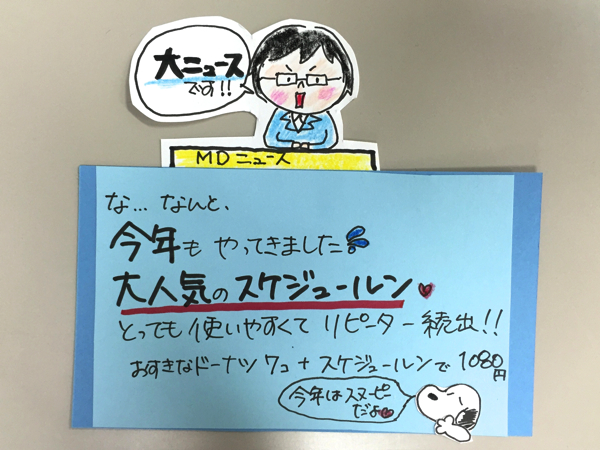 大ニュース
です!!
MDニュース
な… なんと、
今年も やってきました
大人気のスケジュールン
とっても使いやすくて リピーター続出!!
おすきなドーナツ 7コ + スケジュールンで 1080円
今年はスヌーピー
だよ